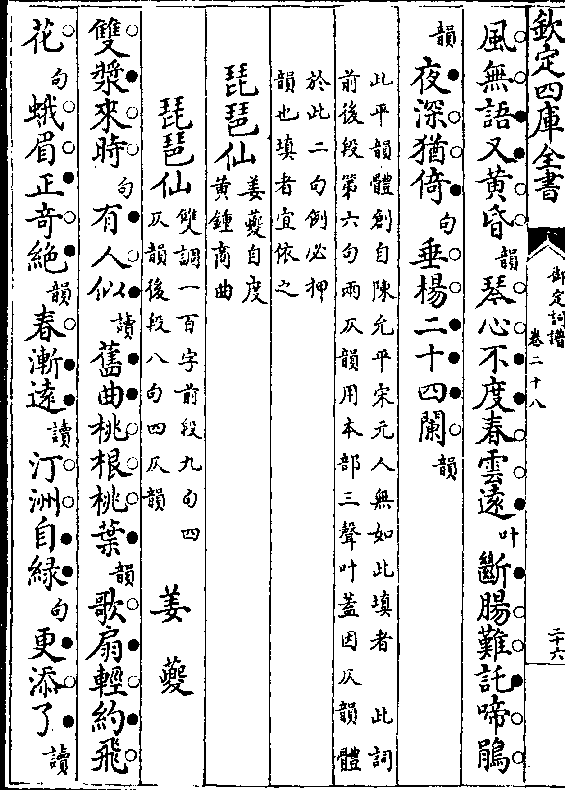 欽定四庫全書
御定詞譜
卷二十八
二十六
風無語又黃昏韻琴心不度春雲遠叶斷腸難託啼鵑
韻夜深猶倚句垂楊二十四闌韻
此平韻體創自陳允平宋元人無如此填者 此詞
前後段第六句兩仄韻用本部三聲叶蓋因仄韻體
於此二句例必押
韻也填者宜依之
琵琶仙姜夔自度
黃鍾商曲
琵琶仙雙調一百字前段九句四
仄韻後段八句四仄韻 姜夔
雙槳來時句有人似讀舊曲桃根桃葉韻歌扇輕約飛
花句蛾眉正奇絶韻春漸遠讀汀洲自緑句更添了讀